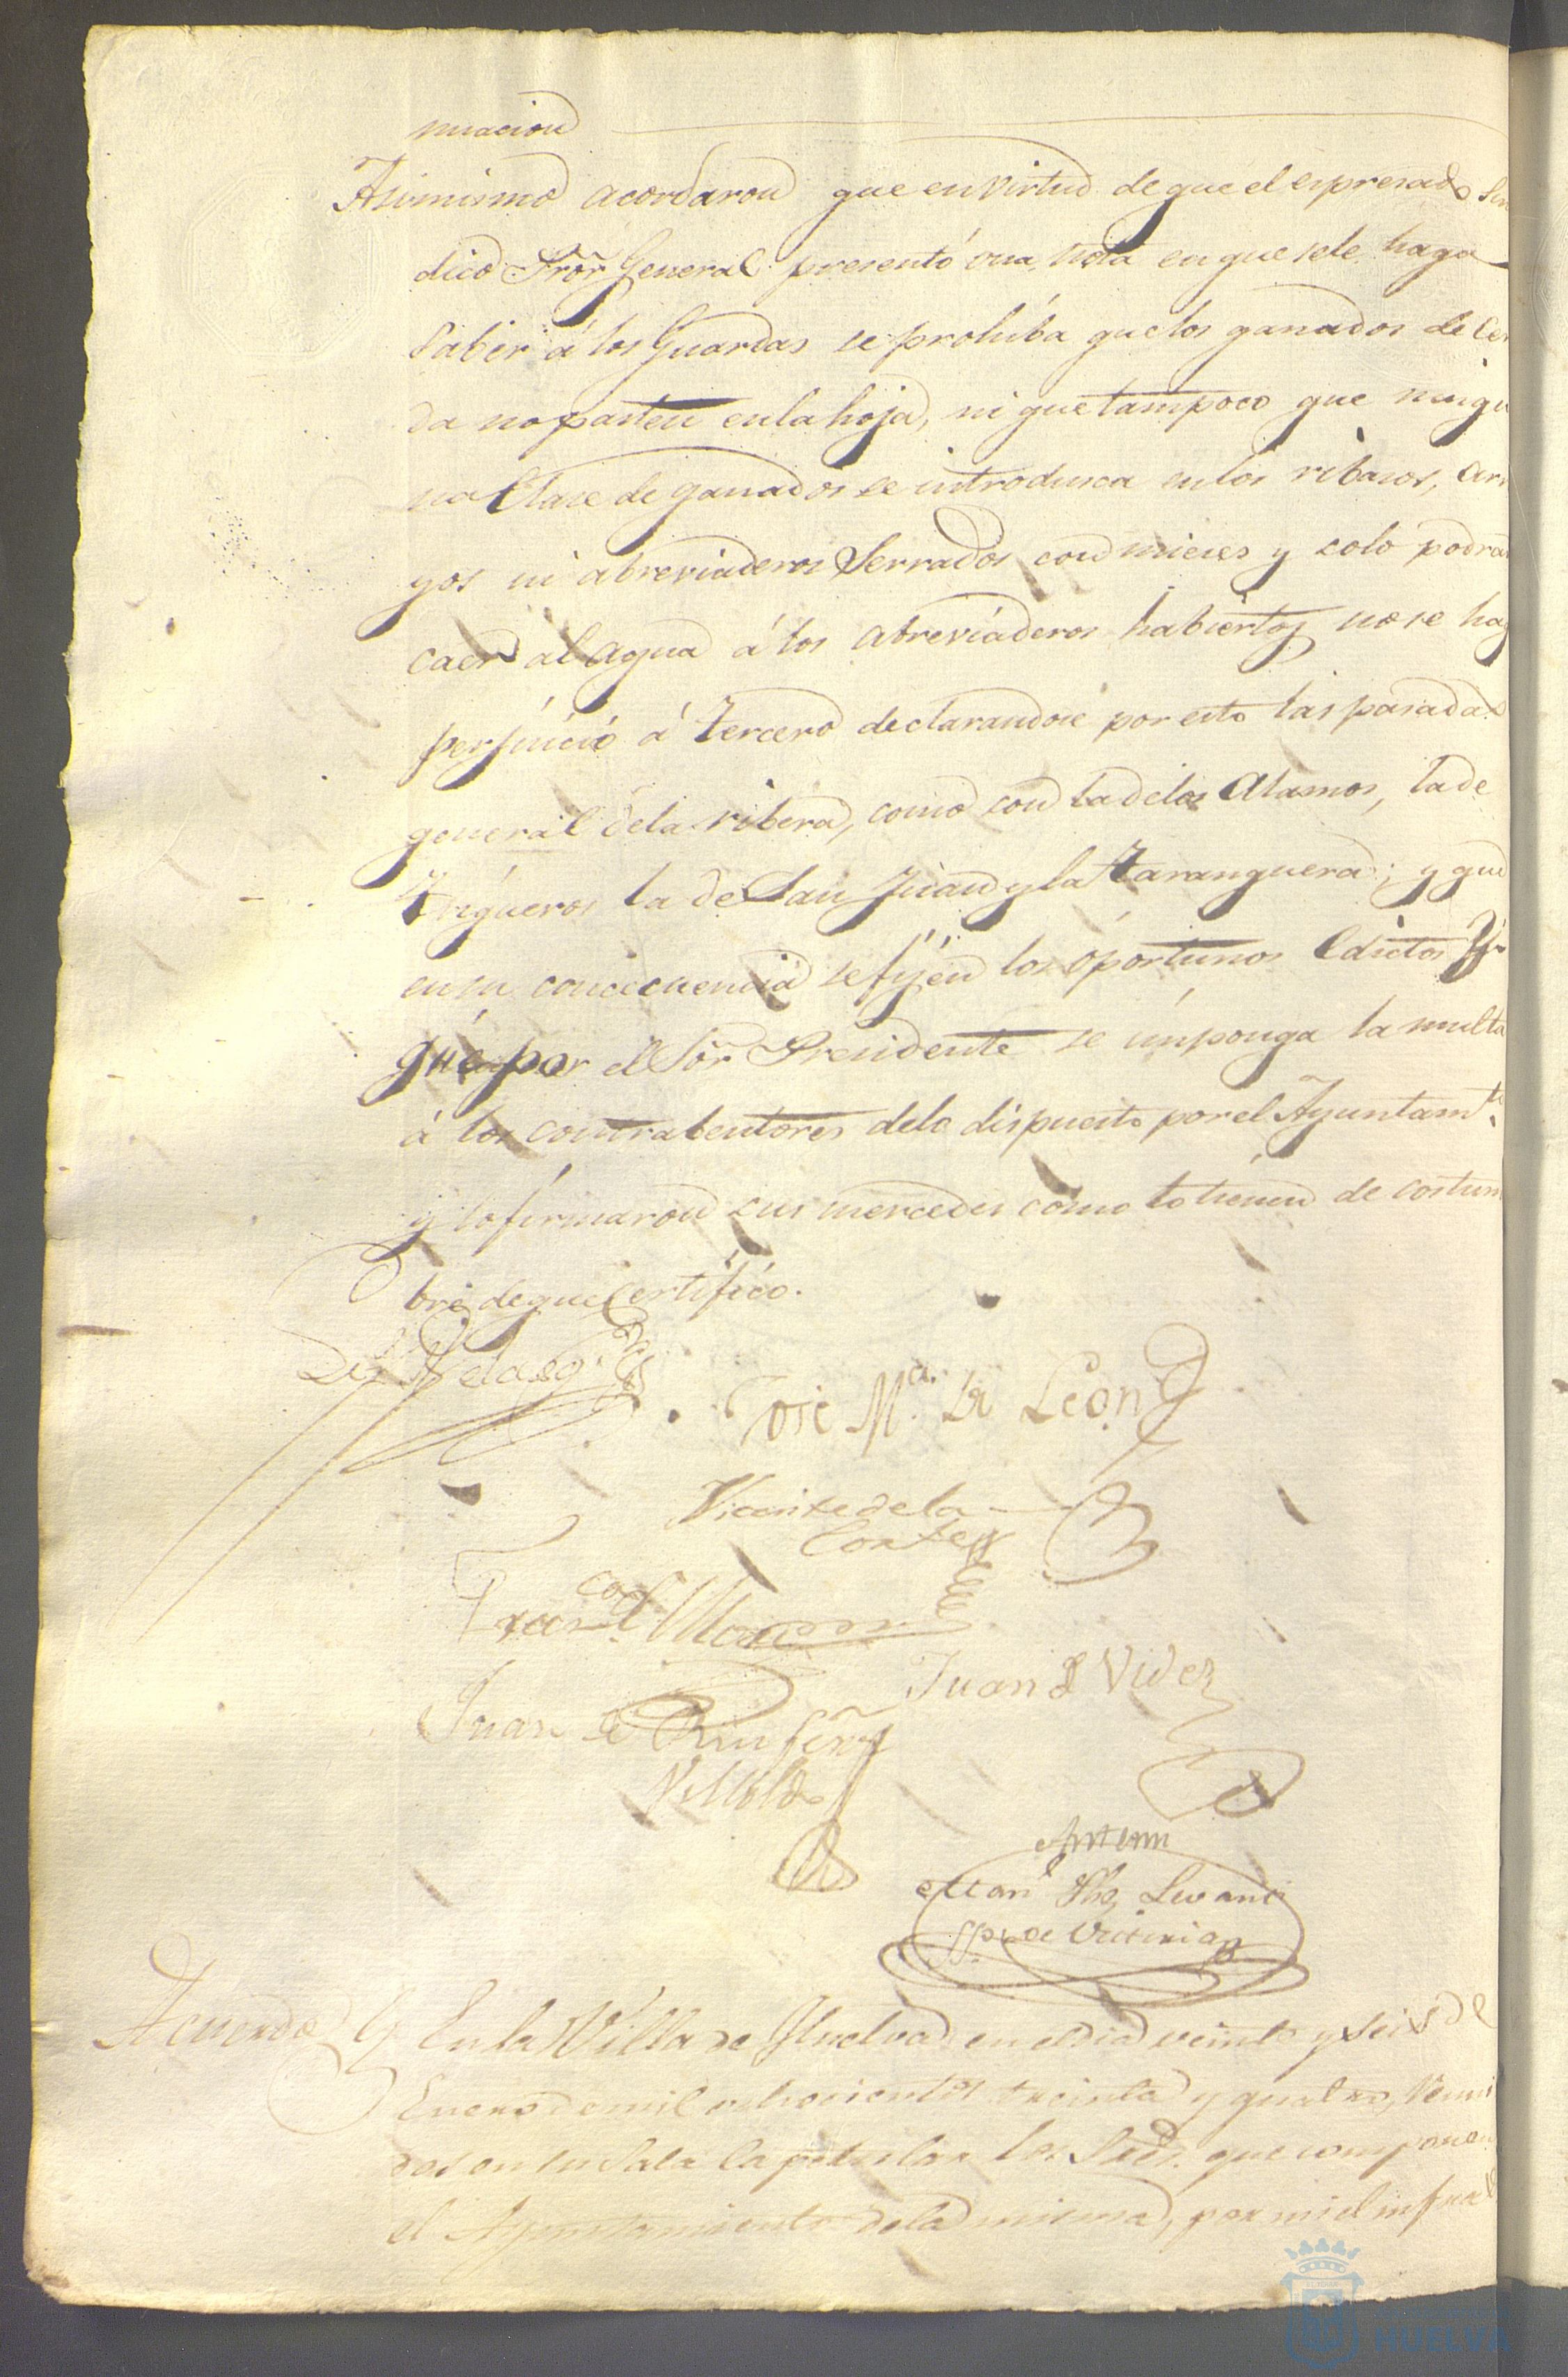 nuacion
Asimismo acordaron que en virtud de que el espresado Sin
dico Pror General presentó una nota en que se le haga
saber á los Guardas se prohiba que los ganados de Cer
da no pasten en la hoja, ni que tampoco que ningu
na Clase de ganados se introdusca en los ribasos, arro
yos ni abreviaderos Serrados con mieses y solo podran
caer al agua á los abreviaderos habiertos no se hag
perjuicio á tercero declarandose por esto las pasadas
general de la ribera, como son la de los Alamos, la de
Trigueros la de San Juan y la Taranguera; y que
en su consecuencia se fijen los oportunos Edictos y
que por el Sor Presidente se imponga la multa
á los contrabentores de lo dispuesto por el Ayuntamto.
y lo firmaron sus mercedes como lo tienen de costum
bre de que Certifico.
José Ma. de Leon
Vicente de la
Corte
Franco.
Juan Videz
Juan de
Villalb
Antemi
Man
SSo. de
Acuerdo En la Villa de Huelva en el dia veinte y seis de
Enero de mil ochocientos treinta y quatro, reuni
dos en su Sala Capitular los Sres. que componen
el Ayuntamiento de la misma, por mi el infraes
HUELVA